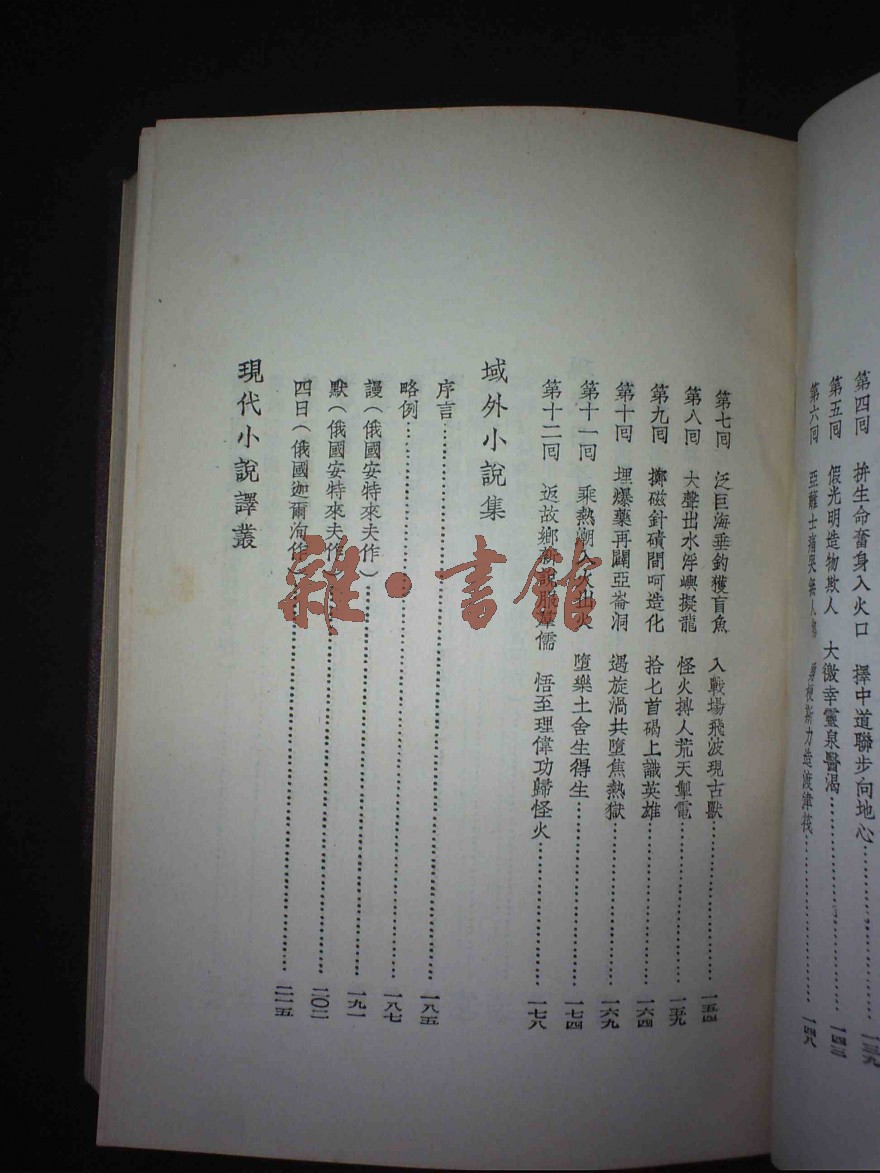 第四回 拚生命奮身入火口 擇中道聯步向地心………一三九
第五回 假光明造物欺人 大徼幸靈泉醫渴………一四三
第六回 亞蘺士痛哭無人 造渡津筏………一四八
第七回 泛巨海垂釣獲盲魚 入戰場飛波現古獸………一五四
第八回 大聲出水浮嶼擬龍 怪火搏人荒天掣電………一五九
第九回 擲磁針碛間呵造化 拾匕首碣上識英雄………一六四
第十回 埋爆藥再闢亞崙洞 遇旋渦共墮焦熱獄………一六九
第十一回 乘熱潮入火出火 墮樂土舍生得生………一七四
第十二回 返故鄉新說服羣儒 悟至理偉功歸怪火………一七八
域外小說集
序言………一八五
略例………一八七
謾(俄國安特來夫作)………一九一
默(俄國安特來夫作)………二〇二
四日(俄國迦爾洵作)………二一五
現代小說譯叢
雜·書館